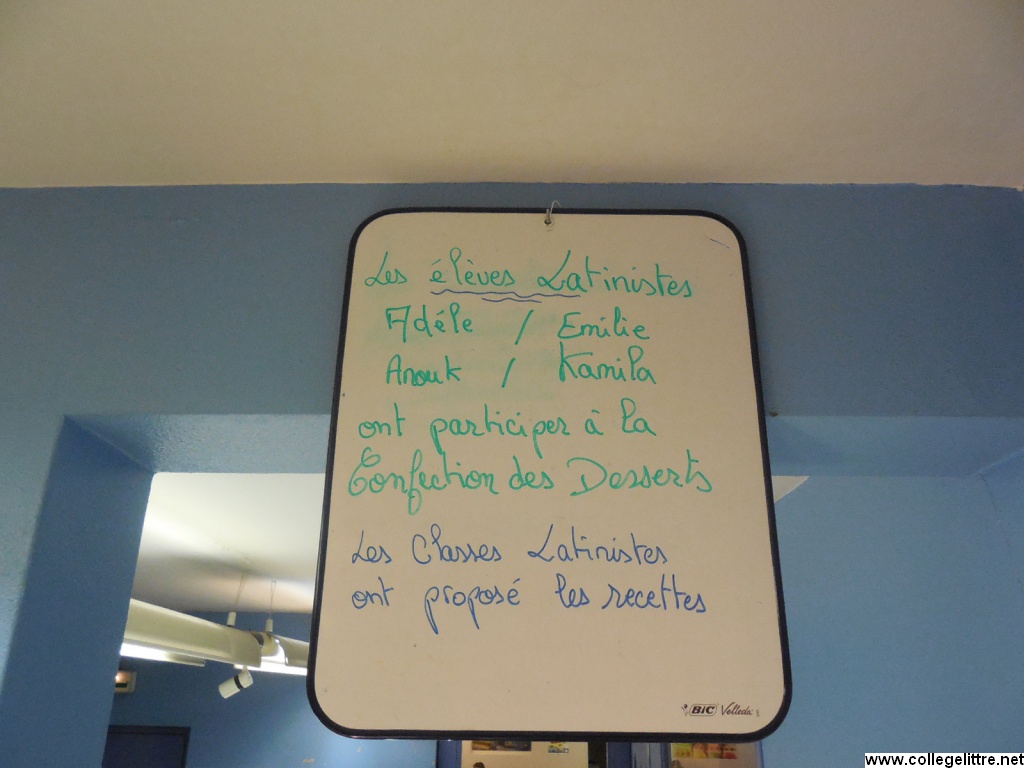 Les élèves Latinistes
Adéle / Emilie
Anouk / Kamila
ont participer à la
Confection des Desserts
Les Classes Latinistes
ont proposé les recettes
BIC Velleda
www.collegelittre.net